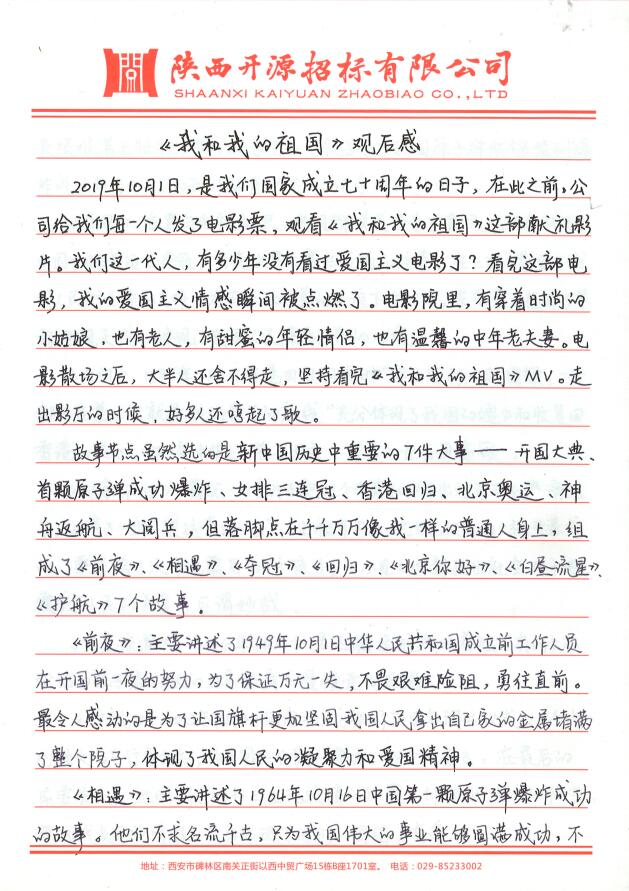 陕西开源招标有限公司
SHAANXI KAIYUAN ZHAOBIAO CO.,LTD
《我和我的祖国》观后感
2019年10月1日，是我们国家成立七十周年的日子，在此之前，公
司给我们每一个人发了电影票，观看《我和我的祖国》这部献礼影
片。我们这一代人，有多少年没有看过爱国主义电影了？看完这部电
影，我的爱国主义情感瞬间被点燃了。电影院里，有穿着时尚的
小姑娘，也有老人，有甜蜜的年轻情侣，也有温馨的中年老夫妻。电
影散场之后，大半人还舍不得走，坚持看完《我和我的祖国》MV。走
出影厅的时候，好多人还哼起了歌。
故事节点虽然选的是新中国历史中重要的7件大事——开国大典、
首颗原子弹成功爆炸、女排三连冠、香港回归、北京奥运、神
舟返航、大阅兵，但落脚点在千千万万像我一样的普通人身上，组
成了《前夜》、《相遇》、《夺冠》、《回归》、《北京你好》、《白昼流星》、
《护航》7个故事。
《前夜》：主要讲述了1949年10月1日中华人民共和国成立前工作人员
在开国前一夜的努力，为了保证万元一失，不畏艰难险阻，勇往直前。
最令人感动的是为了让国旗杆更加坚固我国人民拿出自己家的金属堵满
了整个院子，体现了我国人民的凝聚力和爱国精神。
《相遇》：主要讲述了1964年10月16日中国第一颗原子弹爆炸成功
的故事。他们不求名流千古，只为我国伟大的事业能够圆满成功，不
地址：西安市碑林区南关正街以西中贸广场15栋B座1701室。 电话：029-85233002